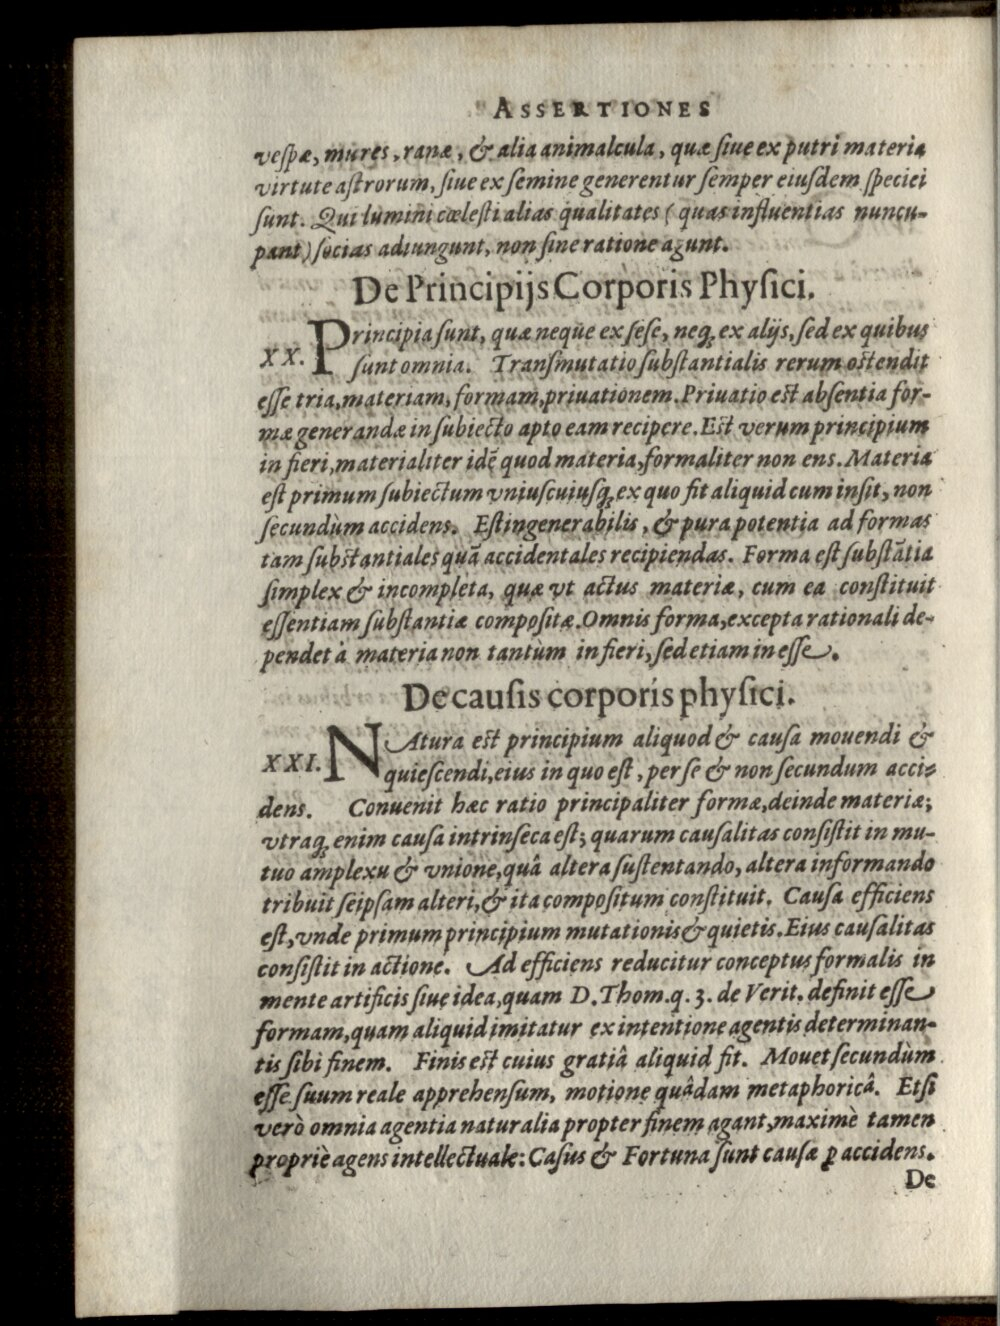 ASSERTIONES
veſpæ, mures, ranæ, & alia animalcula, quæ ſiue ex putri materia
virtute aſtrorum, ſiue ex ſemine generentur ſemper eiuſdem ſpeciei
ſunt. Qui lumini cœleſti alias qualitates (quas influentias nuncu-
pant) ſocias adiungunt, non ſine ratione agunt.
De Principijs Corporis Phyſici.
XX. Principia ſunt, quæ neque ex ſeſe, neq; ex alijs, ſed ex quibus
ſunt omnia. Tranſmutatio ſubſtantialis rerum oſtendit
eſſe tria, materiam, formam, priuationem. Priuatio eſt abſentia for-
mæ generandæ in ſubiecto apto eam recipere. Eſt verum principium
in fieri, materialiter idẽ quod materia, formaliter non ens. Materia
eſt primum ſubiectum vniuſcuiuſq; ex quo fit aliquid cum inſit, non
ſecundùm accidens. Eſt ingenerabilis, & pura potentia ad formas
tam ſubſtantiales quã accidentales recipiendas. Forma eſt ſubſtãtia
ſimplex & incompleta, quæ vt actus materiæ, cum ea conſtituit
eſſentiam ſubſtantiæ compoſitæ. Omnis forma, excepta rationali de-
pendet à materia non tantùm in fieri, ſed etiam in eſſe.
De cauſis corporis phyſici.
XXI. NAtura eſt principium aliquod & cauſa mouendi &
quieſcendi, eius in quo eſt, per ſe & non ſecundum acci-
dens. Conuenit hæc ratio principaliter formæ, deinde materiæ;
vtraq; enim cauſa intrinſeca eſt; quarum cauſalitas conſiſtit in mu-
tuo amplexu & vnione, quâ altera ſuſtentando, altera informando
tribuit ſeipſam alteri, & ita compoſitum conſtituit. Cauſa efficiens
eſt, vnde primum principium mutationis & quietis. Eius cauſalitas
conſiſtit in actione. Ad efficiens reducitur conceptus formalis in
mente artificis ſiue idea, quam D. Thom. q. 3. de Verit. definit eſſe
formam, quam aliquid imitatur ex intentione agentis determinan-
tis ſibi finem. Finis eſt cuius gratiâ aliquid fit. Mouet ſecundùm
eſſe ſuum reale apprehenſum, motione quâdam metaphoricâ. Etſi
verò omnia agentia naturalia propter finem agant, maximè tamen
propriè agens intellectuale: Caſus & Fortuna ſunt cauſæ ꝑ accidens.
De